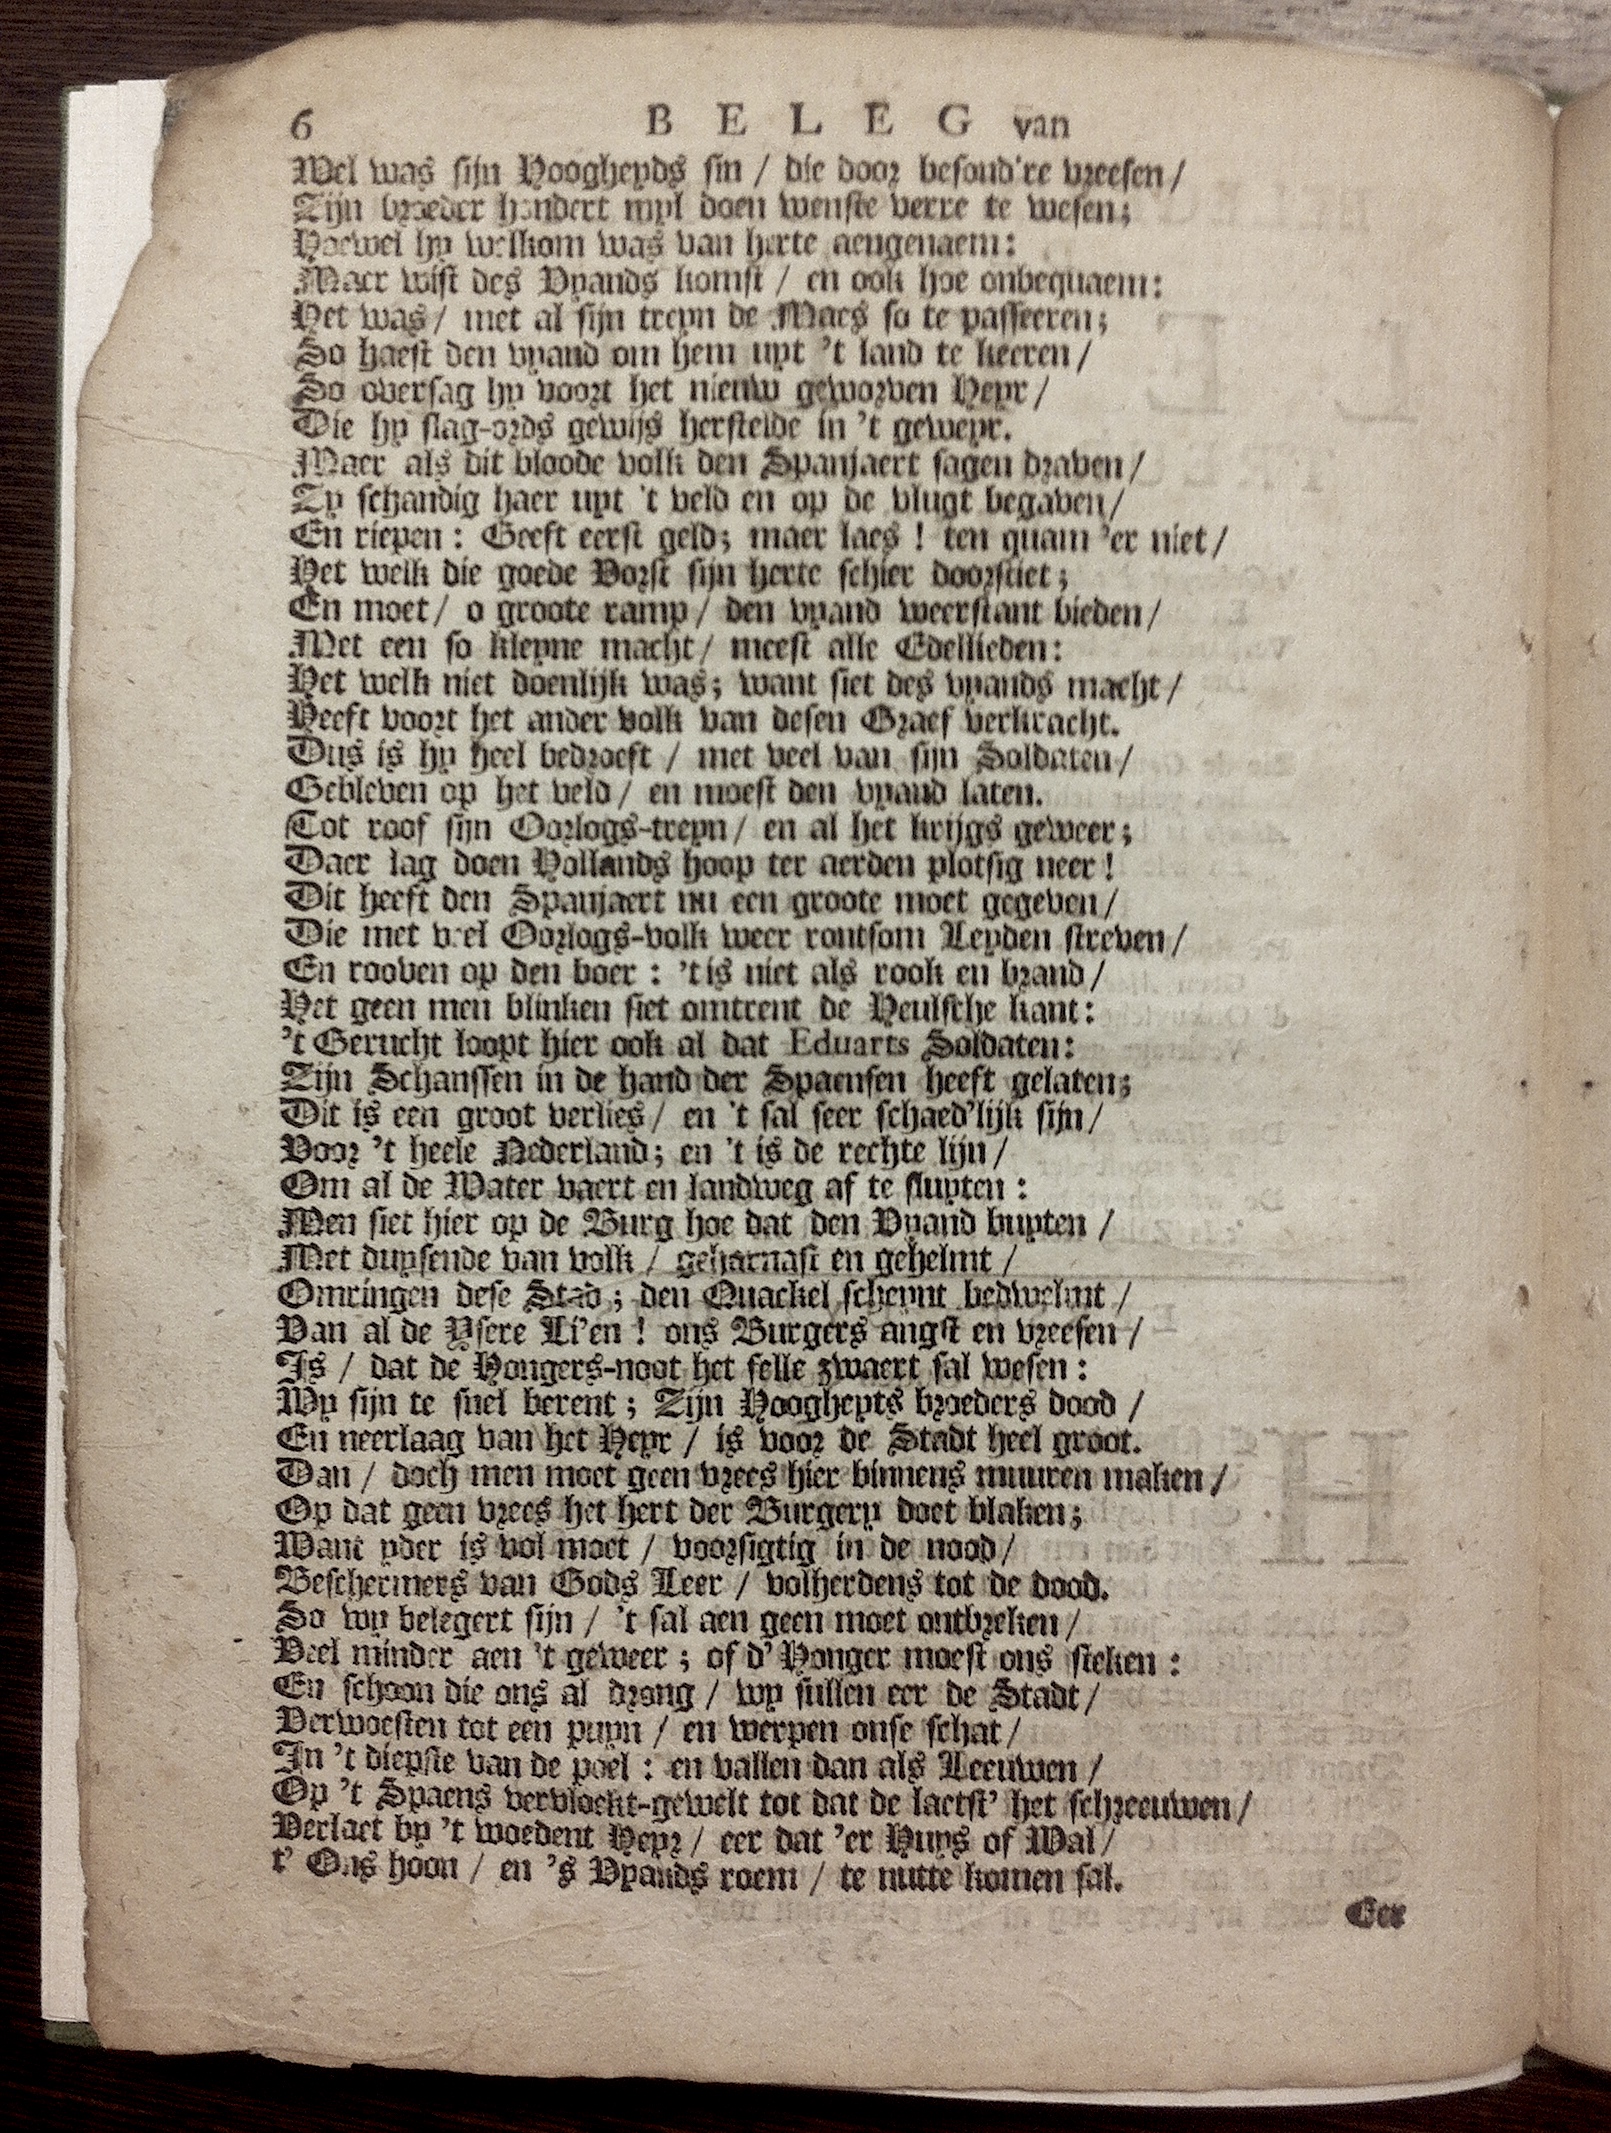 6 BELEG van
Wel was sijn Hoogheyds sin / die door besond're vreesen /
Zijn broeder hondert myl doen wenste verre te wesen;
Hoewel hy welkom was van herte aengenaem:
Maer wist des Vyands komst / en ook hoe onbequaem:
Het was / met al sijn treyn de Maes so te passeeren;
So haest den vyand om hem uyt 't land te keeren /
So oversag hy voort het nieuw geworven Heyr /
Die hy slag-ords gewijs herstelde in 't geweyr.
Maer als dit bloode volk den Spanjaert sagen draven /
Zy schandig haer uyt 't veld en op de vlugt begaven /
En riepen : Geeft eerst geld; maer laes ! ten quam 'er niet /
Het welk die goede Vorst sijn herte schier doorstiet;
En moet / o groote ramp / den vyand weerstant bieden /
Met een so kleyne macht / meest alle Edellieden:
Het welk niet doenlijk was; want siet des vyands macht /
Heeft voort het ander volk van desen Graef verkracht.
Dus is hy heel bedroeft / met veel van sijn Soldaten /
Gebleven op het veld / en moest den vyand laten.
Tot roof sijn Oorlogs-treyn / en al het krijgs geweer;
Daer lag doen Hollands hoop ter aerden plotsig neer !
Dit heeft den Spanjaert nu een groote moet gegeven /
Die met veel Oorlogs-volk weer rontsom Leyden streven /
En rooven op den boer : 't is niet als rook en brand /
Het geen men blinken siet omtrent de Heulsche kant:
't Gerucht loopt hier ook al dat Eduarts Soldaten:
Zijn Schanssen in de hand der Spaensen heeft gelaten;
Dit is een groot verlies / en 't sal seer schaed'lijk sijn /
Voor 't heele Nederland; en 't is de rechte lijn /
Om al de Water vaert en landweg af te sluyten :
Men siet hier op de Burg hoe dat den Vyand buyten /
Met duysende van volk / geharnast en gehelmt /
Omringen dese Stad ; den Quackel scheynt bedwelmt /
Van al de Ysere Li'en ! ons Burgers angst en vreesen /
Is / dat de Hongers-noot het felle zwaert sal wesen :
Wy sijn te snel berent ; Zijn Hoogheyts broeders dood /
En neerlaag van het Heyr / is voor de Stadt heel groot.
Dan / doch men moet geen vrees hier binnens muuren maken /
Op dat geen vrees het hert der Burgery doet blaken;
Want yder is vol moet / voorsigtig in de nood /
Beschermers van Gods Leer / volherdens tot de dood.
So wy belegert sijn / 't sal aen geen moet ontbreken /
Veel minder aen 't geweer ; of d' Honger moest ons steken :
En schoon die ons al drong / wy sullen eer de Stadt /
Verwoesten tot een puyn / en werpen onse schat /
In 't diepste van de poel : en vallen dan als Leeuwen /
Op 't Spaens vervloekt-gewelt tot dat de laetst' het schreeuwen /
Verlaet by 't woedent Heyr / eer dat 'er Huys of Wal /
t' Ons hoon / en 's Vyands roem / te nutte komen sal.
Eer